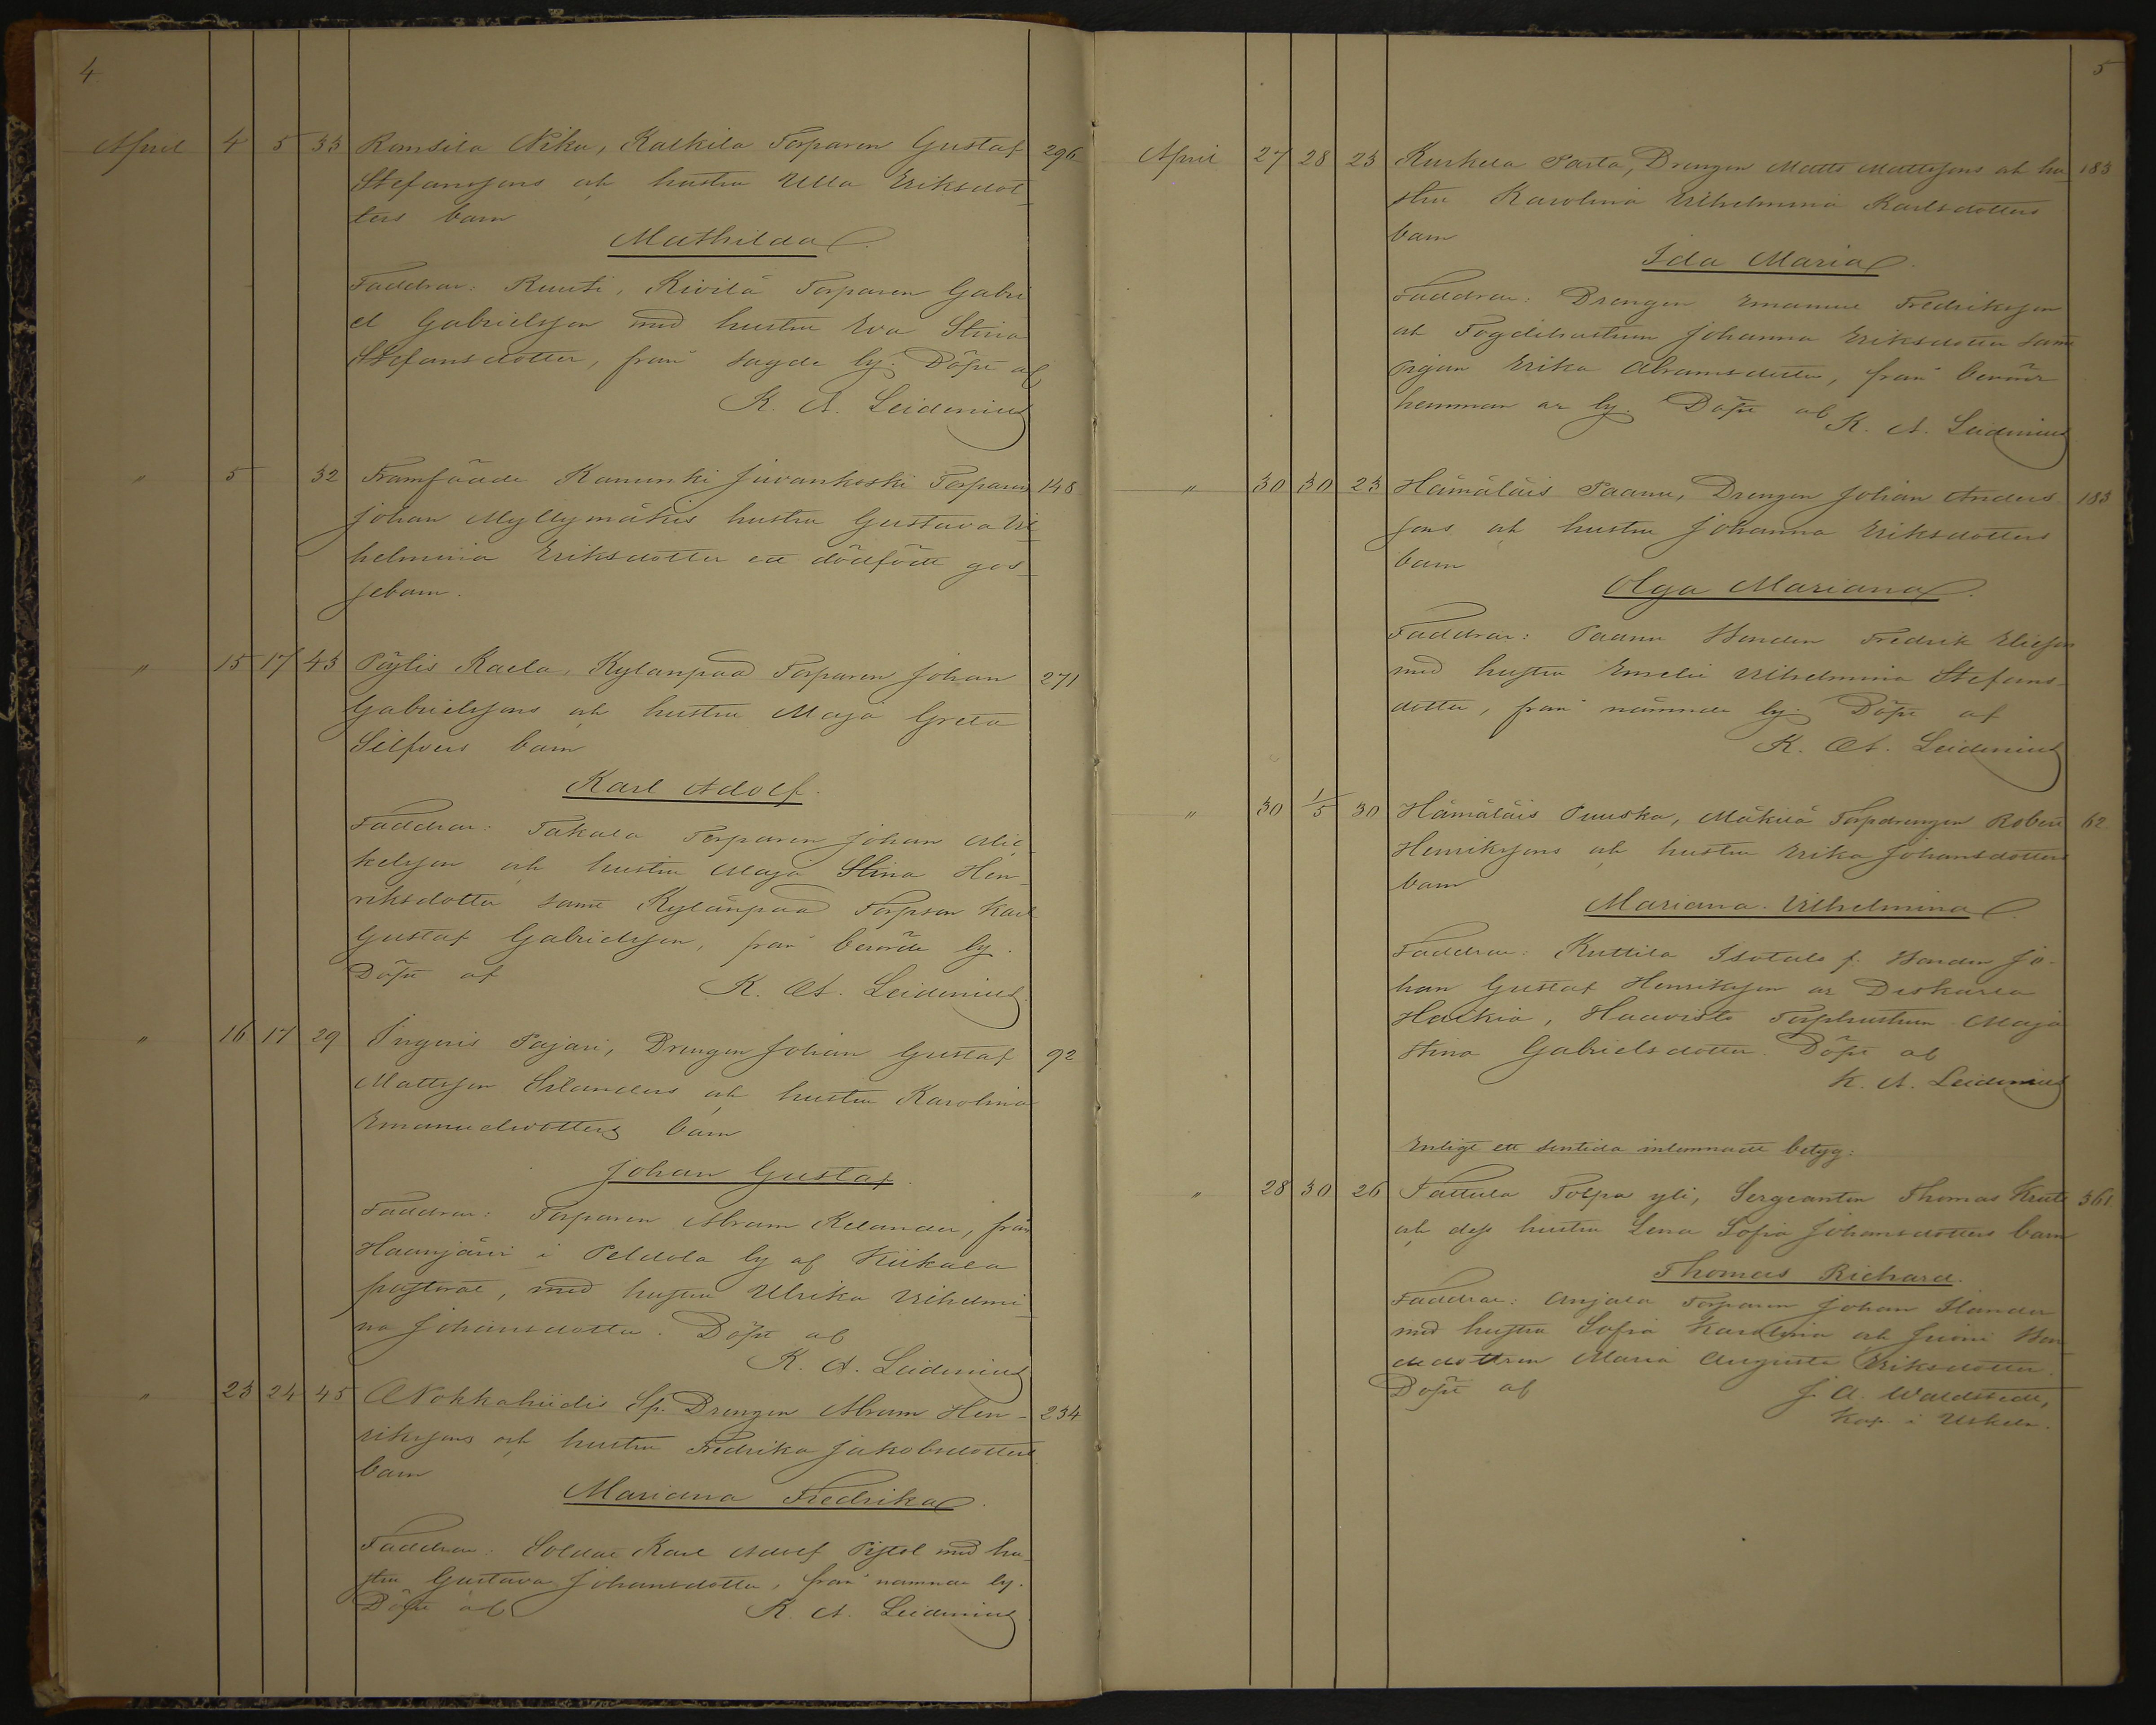 4
April 4 5 33 Romsila Niku, Kalkila Torparen Gustaf 296
Stefanssons och hustru Ulla Eriksdot-
ters barn
Mathilda.
Faddrar: Ruuti, Kivilä Torparen Gabri-
el Gabrielsson med hustru Eva Stina
Stefansdotter, från sagde by. Döpt af
K. A. Leidenius
" 5 32 Framfödde Kanunki Juvankoski Torparen 148
Johan Myllymäkis hustru Gustava Vil-
helmina Eriksdotter ett dödfödt gos-
sebarn.
" 15 17 43 Pöytis Kaela, Kylänpää Torparen Johan 271
Gabrielssons och hustru Maja Greta
Silfvers barn
Karl Adolf.
Faddrar: Takala Torparen Johan Mic-
kelsson och hustru Maja Stina Hen-
riksdotter samt Kylänpää Torpson Karl
Gustaf Gabrielsson, från berörde by.
Döpt af
K. A. Leidenius.
" 16 17 29 Pajari, Drengen Johan Gustaf 92
Mattsson Silanders och hustru Karolina
Emanuelsdotters barn
Johan Gustaf.
Faddrar: Torparen Abram Kelander, från
Haanjärvi i Peldola by af Kiikala
pastorat, med hustru Ulrika Vilhelmi-
na Johansdotter. Döpt af
K. A. Leidenius
" 23 24 45 Nokkahiidis Sp. Drengen Abram Hen- 234
rikssons och hustru Fredrika Jakobsdotters
barn
Mariana Fredrika.
Faddrar: Soldat Karl Adolf Pistol med hu-
stru Gustava Johansdotter, från nämnde by.
Döpt af K. A. Leidenius
5
April 27 28 23 Kurkela Parta, Drengen Matts Mattssons och hu- 183
stru Karolina Vilhelmina Karlsdotters
barn
Ida Maria.
Faddrar: Drengen Emanuel Fredriksson
och Fogdehustrun Johanna Eriksdotter samt
pigan Erika Abramsdotter, från berörde
hemman och by. Döpt af K. A. Leidenius
" 30 30 23 Hämäläis Paanu, Drengen Johan Anders- 183
sons och hustru Johanna Eriksdotters
barn
Olga Mariana.
Faddrar: Paanu Bonden Fredrik Eliesson
med hustru Emelie Vilhelmina Stefans-
dotter, från nämnde by. Döpt af
K. A. Leidenius
" 30 1/5 30 Hämäläis Puuska, Mäkilä Torpdrengen Robert 62
Henrikssons och hustru Erika Johansdotters
barn
Mariana Vilhelmina.
Faddrar: Kuttila Isotalo f. Bonden Jo-
han Gustaf Henriksson
Halkia, Haavisto Torphustrun Maja
Stina Gabrielsdotter. Döpt af
K. A. Leidenius
Enligt ett sentida inlemnadt betyg:
" 28 30 26 Tattula Tolpa yli, Sergeanten Thomas Krut 361
och dess hustru Lena Sofia Johansdotters barn
Thomas Richard.
Faddrar: Anjala Torparen Johan Ilander
med hustru Sofia Karolina och Bon-
dedottren Maria Augusta Eriksdotter.
Döpt af J. A. Waldstedt,
Kap. i Uskela.